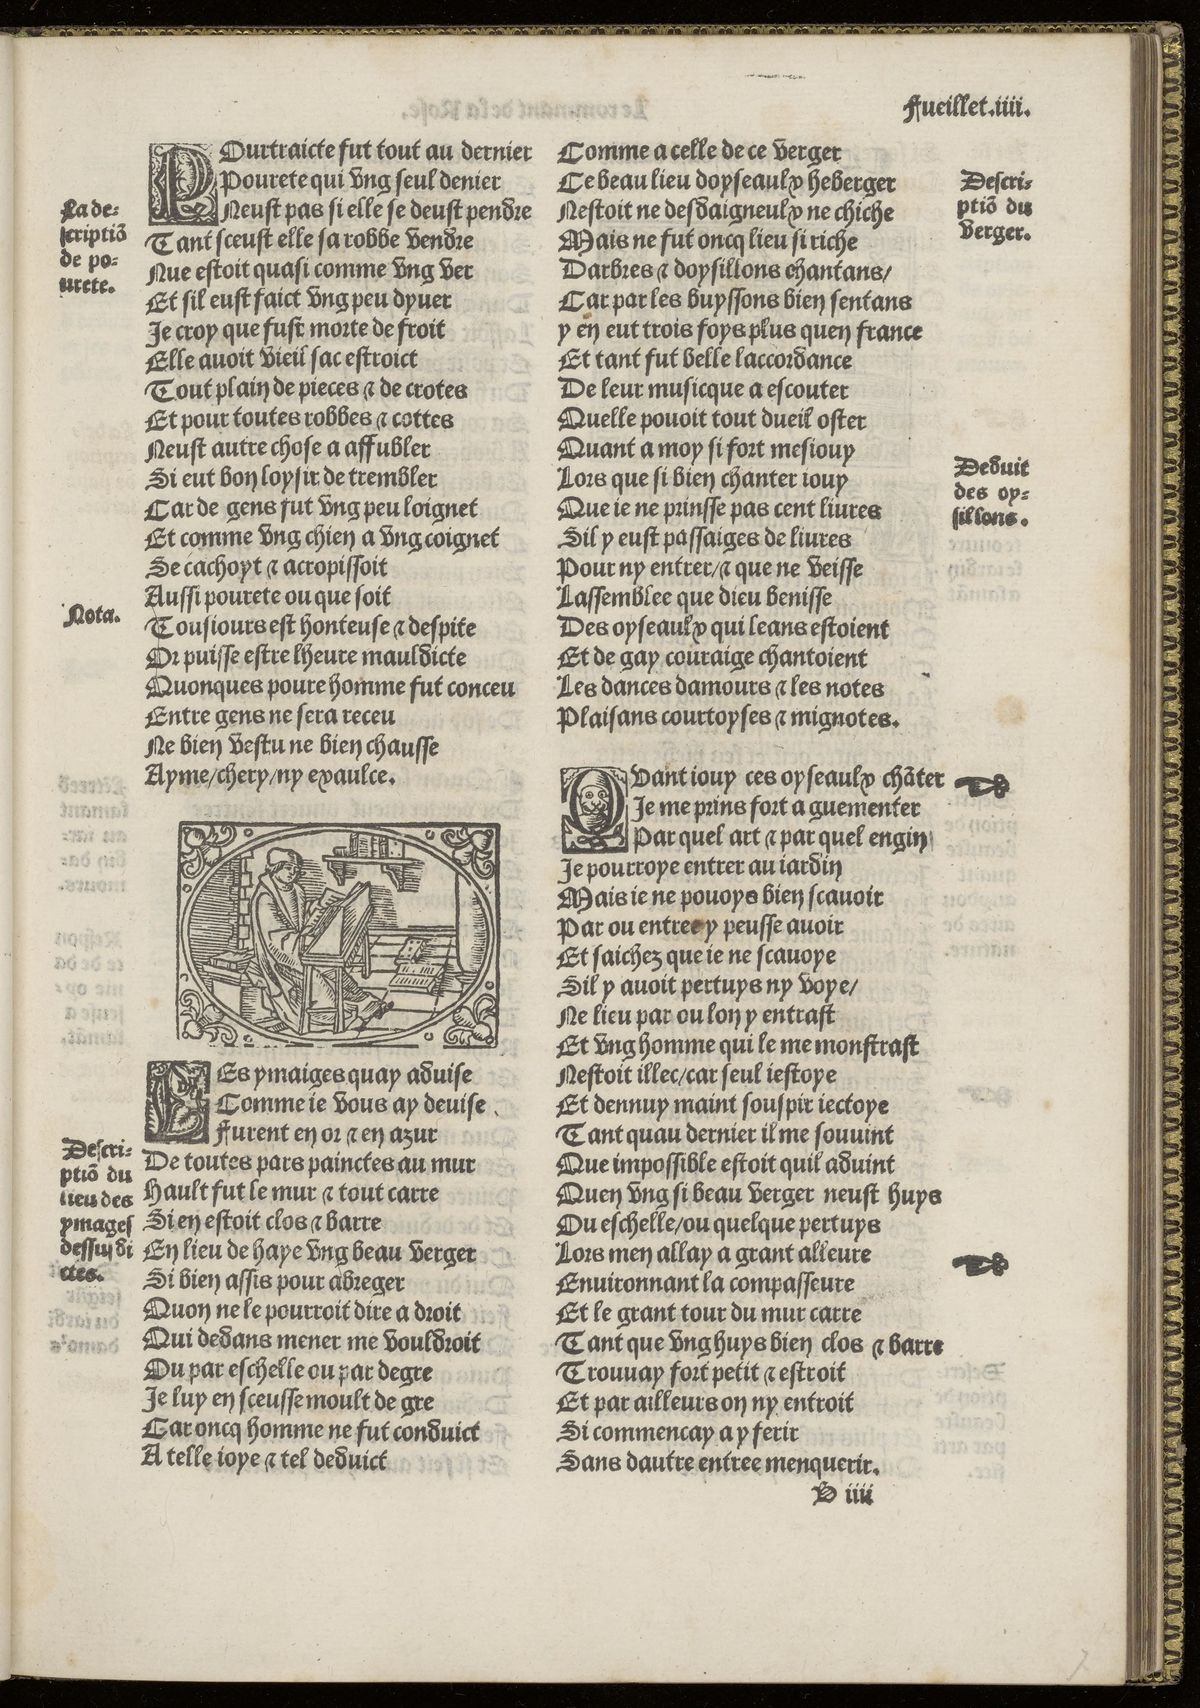 Fueillet.iiii.
POurtraicte fut tout au dernier
Pourete qui vng seul denier
Neust pas si elle se deust pendre
Tant sceust elle sa robbe vendre
Nue estoit quasi comme vng ver
Et sil eust faict vng peu dyuer
Je croy que fust morte de froit
Elle auoit vieil sac estroict
Tout plain de pieces ⁊ de crotes
Et pour toutes robbes ⁊ cottes
Neust autre chose a affubler
Si eut bon loysir de trembler
Car de gens fut vng peu loignet
Et comme vng chien a vng coignet
Se cachoyt ⁊ acropissoit
Aussi pourete ou que soit
Tousiours est honteuse ⁊ despite
Or puisse estre lheure mauldicte
Quonques poure homme fut conceu
Entre gens ne sera receu
Ne bien vestu ne bien chausse
Ayme/chery/ny exaulce.
La de-
scriptiõ
de po-
urete.
Nota.
LEs ymaiges quay aduise
Comme ie vous ay deuise
Furent en or ⁊ en azur
De toutes pars painctes au mur
Hault fut le mur ⁊ tout carre
Si en estoit clos ⁊ barre
En lieu de haye vng beau verger
Si bien assis pour abreger
Quon ne le pourroit dire a droit
Qui dedans mener me vouldroit
Ou par eschelle ou par degre
Je luy en sceusse moult de gre
Car oncq homme ne fut conduict
A telle ioye ⁊ tel deduict
Descri-
ptiõ du
lieu des
ymages
dessusdi
ctes.
Comme a celle de ce verger
Ce beau lieu doyseaulx heberger
Nestoit ne desdaigneulx ne chiche
Mais ne fut oncq lieu si riche
Darbres ⁊ doysillons chantans/
Car par les buyssons bien sentans
y en eut trois foys plus quen france
Et tant fut belle laccordance
De leur musicque a escouter
Quelle pouoit tout dueil oster
Quant a moy si fort mesiouy
Lors que si bien chanter iouy
Que ie ne prinsse pas cent liures
Sil y eust passaiges de liures
Pour ny entrer/⁊ que ne veisse
Lassemblee que dieu benisse
Des oyseaulx qui leans estoient
Et de gay couraige chantoient
Les dances damours ⁊ les notes
Plaisans courtoyses ⁊ mignotes.
Descri-
ptiõ du
verger.
Deduit
des oy-
sillons.
QVant iouy ces oyseaulx chãter
Je me prins fort a guementer
Par quel art ⁊ par quel engin
Je pourroye entrer au iardin
Mais ie ne pouoys bien scauoir
Par ou entree y peusse auoir
Et saichez que ie ne scauoye
Sil y auoit pertuys ny voye/
Ne lieu par ou lon y entrast
Et vng homme qui le me monstrast
Nestoit illec/car seul iestoye
Et dennuy maint souspir iectoye
Tant quau dernier il me souuint
Que impossible estoit quil aduint
Quen vng si beau verger neust huys
Ou eschelle/ou quelque pertuys
Lors men allay a grant alleure
Enuironnant la compasseure
Et le grant tour du mur carre
Tant que vng huys bien clos ⁊ barre
Trouuay fort petit ⁊ estroit
Et par ailleurs on ny entroit
Si commencay a y ferir
Sans dautre entree menquerir.
B iiii
7